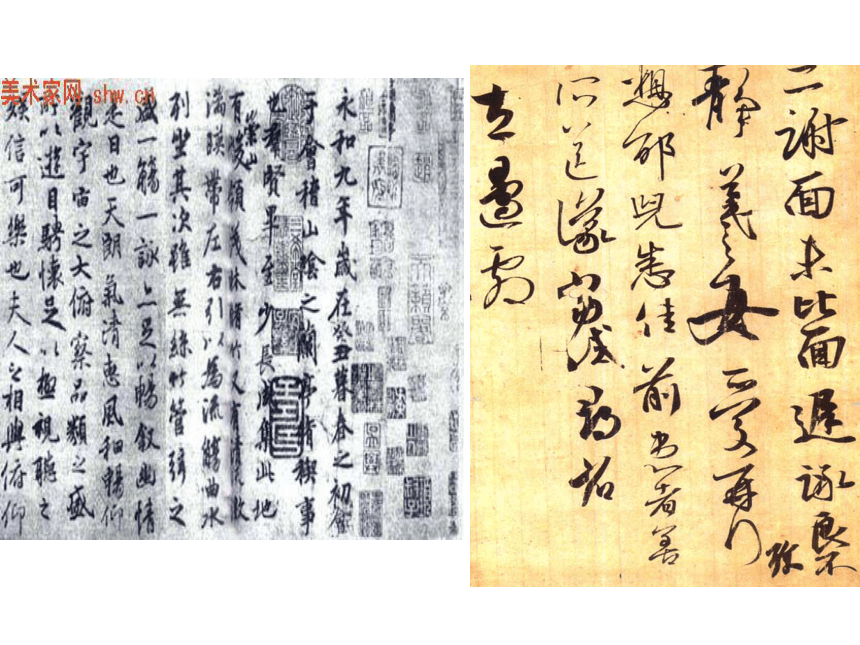 美术家网 shw.cn
永和九年歲在癸丑暮春之初會
于會稽山陰之蘭亭脩稧事
也羣賢畢至少長咸集此地
有崇山峻領茂林脩竹又有清流激
湍暎帶左右引以為流觴曲水
列坐其次雖無絲竹管弦之
盛一觴一詠亦足以暢敘幽情
是日也天朗氣清惠風和暢仰
觀宇宙之大俯察品類之盛
所以遊目騁懷足以極視聽之
娛信可樂也夫人之相與俯仰
二謝面未比面遲詠良不
珍
靜羲之女愛再拜
想邰兒悉佳前患者善
所送議當試尋省
左邊劇